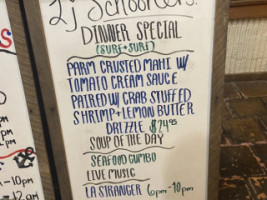 2J Schooners
DINNER SPECIAL
(SURF + SURF)
PARM CRUSTED MAHI W/
TOMATO CREAM SAUCE
PAIRED W/ CRAB STUFFED
SHRIMP + LEMON BUTTER
DRIZZLE $24.95
SOUP OF THE DAY
SEAFOOD GUMBO
LIVE MUSIC
LA STRANGER 6pm-10pm
-10pm